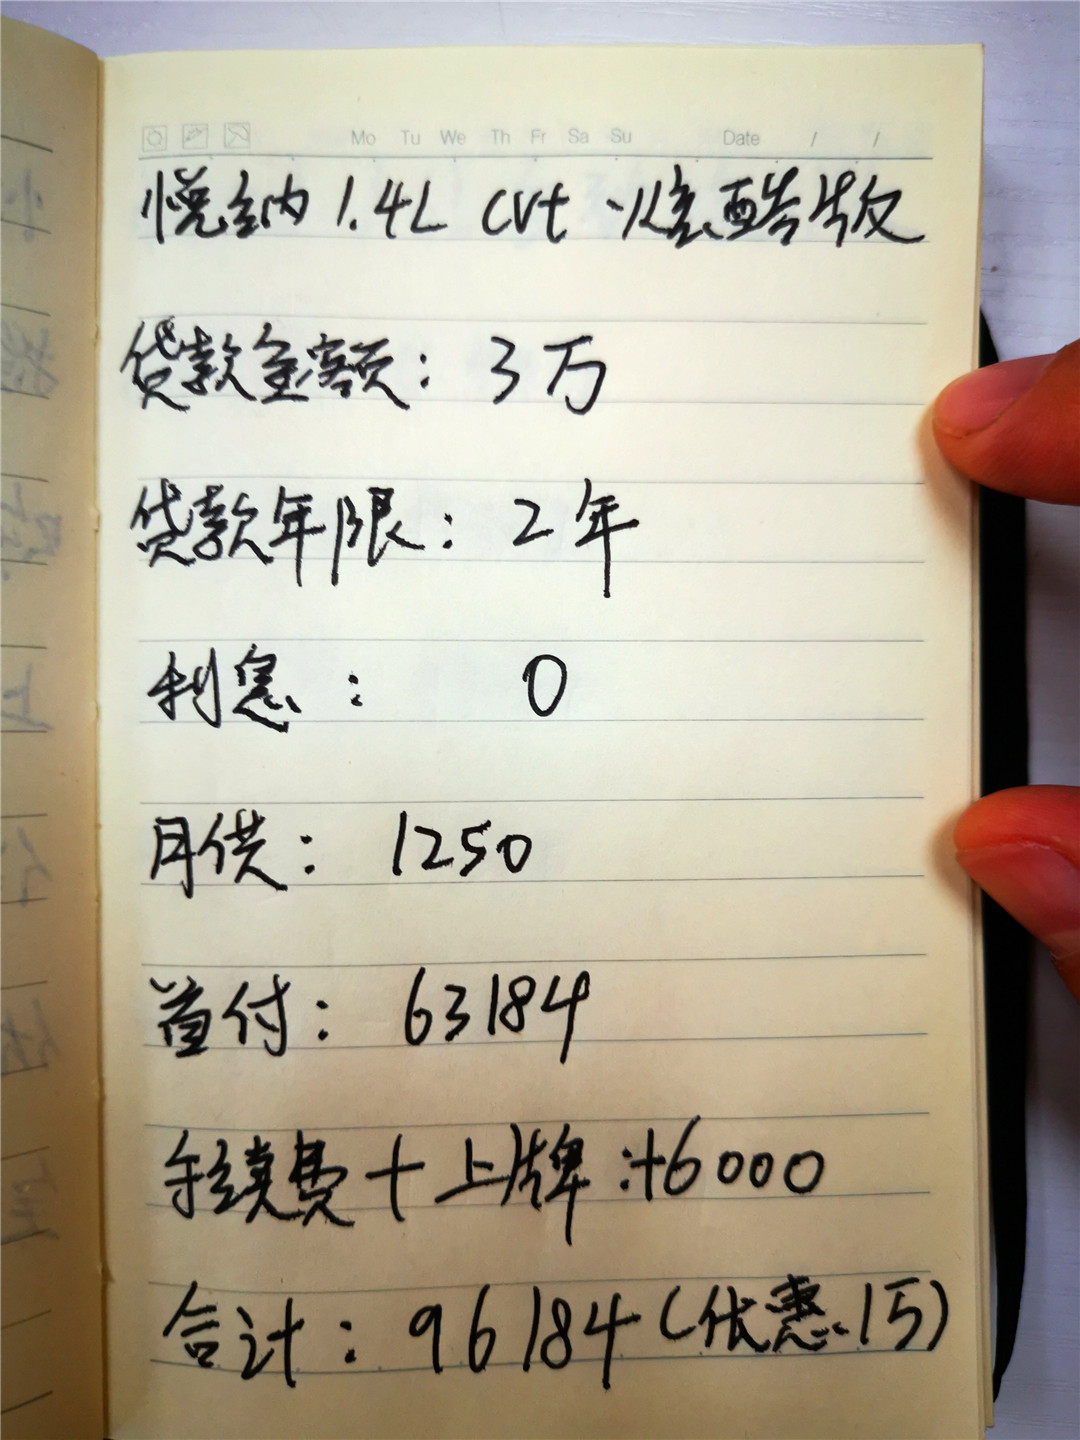 Mo Tu We Th Fr Sa Su Date / /
悦纳 1.4L cvt 炫酷版
贷款金额：3万
贷款年限：2年
利息： 0
月供：1250
首付：63184
手续费+上牌：+6000
合计：96184（优惠1万）